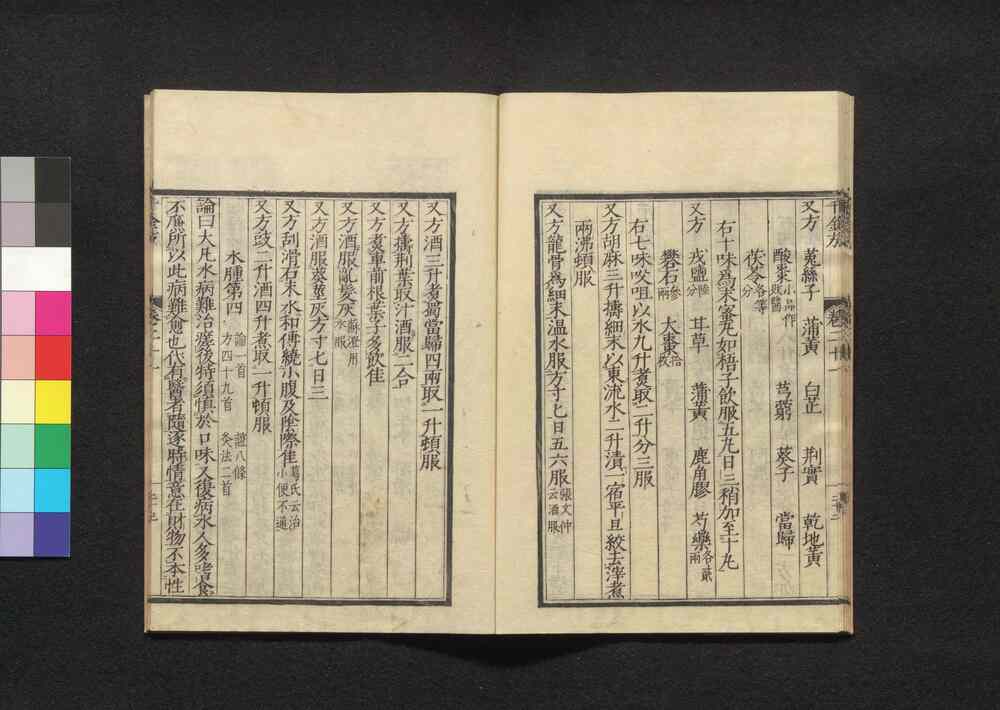 又方 菟絲子 蒲黃 白芷 荆實 乾地黃
酸棗小品作敗醬 芎藭 葵子 當歸
茯苓各等分
右十味爲末蜜丸如梧子飲服五丸日三稍加至十丸
又方 戎鹽陸分 甘草 蒲黃 鹿角膠 芍藥各貳兩
礬石參兩 大棗拾枚
右七味㕮咀以水九升煮取二升分三服
又方胡麻三升擣細末以東流水二升漬一宿平旦絞去滓煮
兩沸頓服
又方龍骨爲細末温水服方寸匕日五六服張文仲云酒服
又方酒三升煮蜀當歸四兩取一升頓服
又方擣荆葉取汁酒服二合
又方煮車前根葉子多飲佳
又方酒服亂髮灰蘇澄用水服
又方酒服葵莖灰方寸匕日三
又方刮滑石末水和傅繞小腹及陰際佳葛氏云治小便不通
又方豉二升酒四升煮取一升頓服
水腫第四 論一首 證八條 方四十九首 灸法二首
論曰大凡水病難治瘥後特須慎於口味又復病水人多嗜食
不廉所以此病難愈也代有醫者隨逐時情意在財物不本性